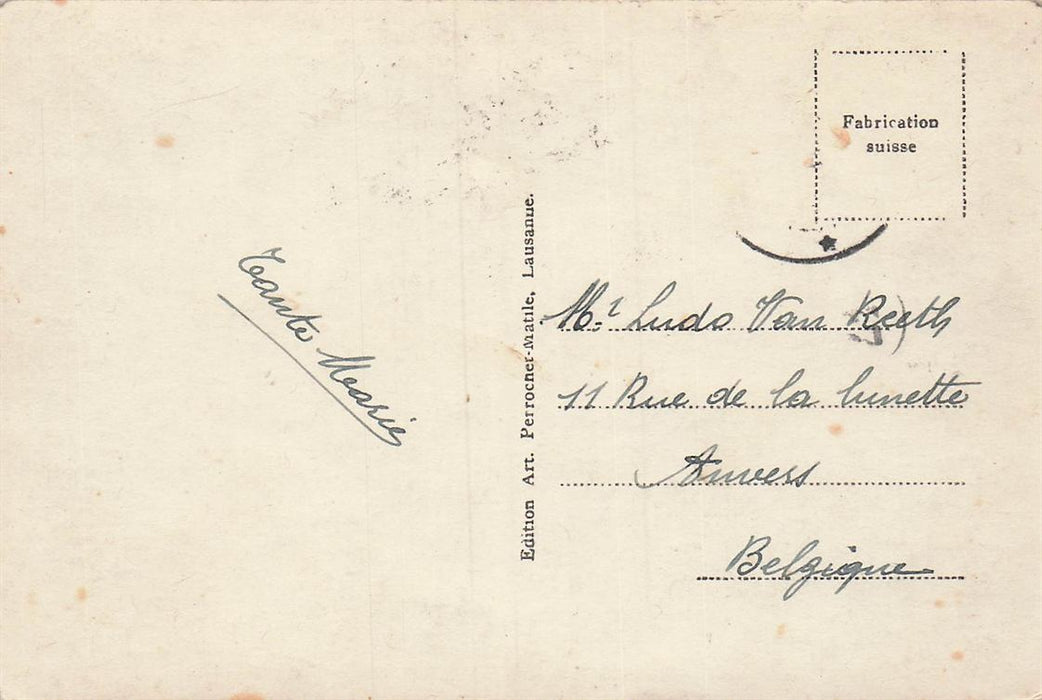 Fabrication
suisse
Tante Marie
Edition Art. Perrochet-Matile, Lausanne.
Mr Ludo Van Reeth
11 Rue de la lunette
Anvers
Belgique